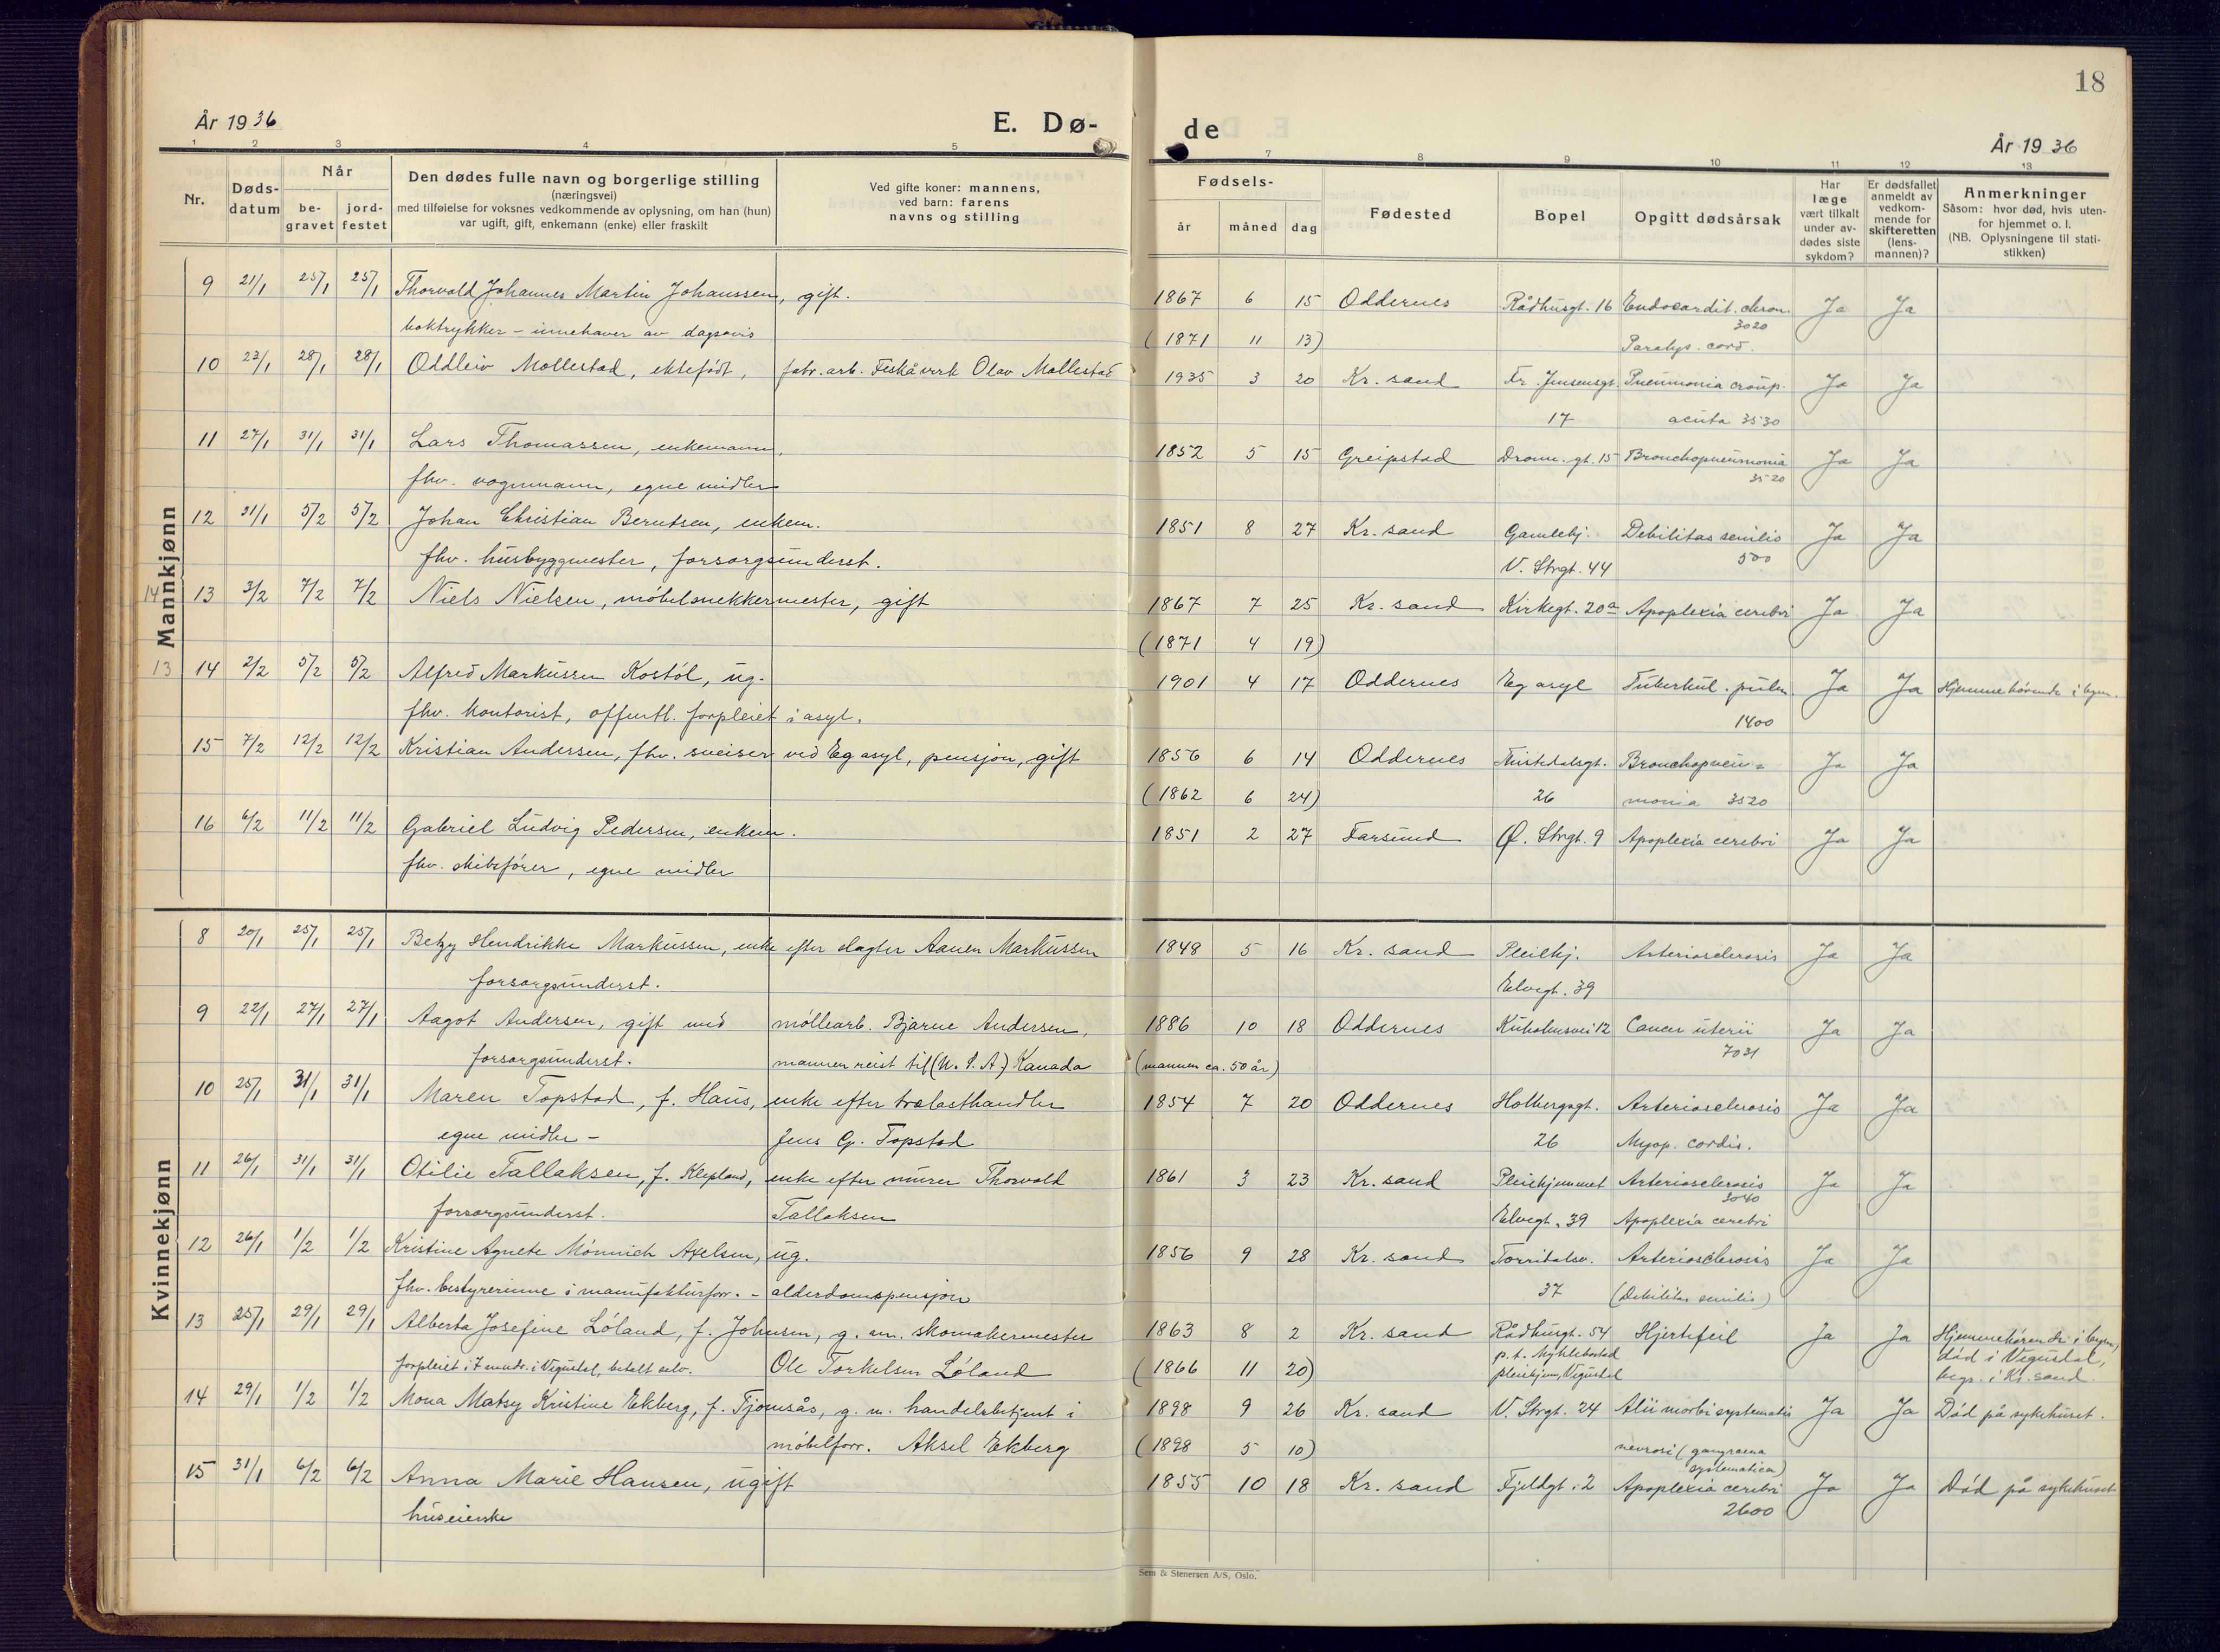 18
År 1936
E. Dø-
de
År 1936
1 2 3 4 5
7 8 9 10 11 12 13
Nr.
Døds-
datum
Når
be-
gravet
jord-
festet
Den dødes fulle navn og borgerlige stilling
(næringsvei)
med tilføielse for voksnes vedkommende av oplysning, om han (hun)
var ugift, gift, enkemann (enke) eller fraskilt
Ved gifte koner: mannens,
ved barn: farens
navns og stilling
Fødsels-
år måned dag
Fødested
Bopel
Opgitt dødsårsak
Har
læge
vært tilkalt
under av-
dødes siste
sykdom?
Er dødsfallet
anmeldt av
vedkom-
mende for
skifteretten
(lens-
mannen)?
Anmerkninger
Såsom: hvor død, hvis uten-
for hjemmet o. l.
(NB. Oplysningene til stati-
stikken)
Mannkjønn
9 21/1 25/1 25/1 Thorvald Johannes Martin Johanssen, gift. 1867 6 15 Oddernes Rådhusgt. 16 Endocardit. chron. Ja Ja
3020
boktrykker - innehaver av dagsavis (1871 11 13) Paralys. cord.
10 23/1 28/1 28/1 Oddleiv Mollestad, ektefødt, fabr. arb. Fiskåverk Olav Mollestad 1935 3 20 Kr. sand Fr. Jensensgt. Pneumonia croup. Ja Ja
17 acuta 3530
11 27/1 31/1 31/1 Lars Thomassen, enkemann, 1852 5 15 Greipstad Dronn. gt. 15 Bronchopneumonia Ja Ja
3520
fhv. vognmann, egne midler
12 31/1 5/2 5/2 Johan Christian Berntsen, enkem. 1851 8 27 Kr. sand Gamlehj. Debilitas senilis Ja Ja
fhv. husbyggmester, forsorgsunderst. V. Strgt. 44 500
14 13 3/2 7/2 7/2 Niels Nielsen, møbelsnekkermester, gift 1867 7 25 Kr. sand Kirkegt. 20a Apoplexia cerebri Ja Ja
(1871 4 19)
13 14 2/2 5/2 5/2 Alfred Markussen Kostøl, ug. 1901 4 17 Oddernes Eg asyl Tuberkul. pulm. Ja Ja Hjemmehørende i byen.
fhv. kontorist, offentl. forpleiet i asyl. 1400
15 7/2 12/2 12/2 Kristian Andersen, fhv. sveiser ved Eg asyl, pensjon, gift 1856 6 14 Oddernes Tristedalsgt. Bronchopneu- Ja Ja
(1862 6 24) 26 monia 3520
16 6/2 11/2 11/2 Gabriel Ludvig Pedersen, enkem. 1851 2 27 Farsund Ø. Strgt. 9 Apoplexia cerebri Ja Ja
fhv. skibsfører, egne midler
Kvinnekjønn
8 20/1 25/1 25/1 Betzy Hendrikke Markussen, enke efter slagter Aanen Markussen 1848 5 16 Kr. sand Pleiehj. Arteriosclerosis Ja Ja
forsorgsunderst. Elvegt. 39
9 22/1 27/1 27/1 Aagot Andersen, gift med møllearb. Bjarne Andersen, 1886 10 18 Oddernes Kuholmsvei 12 Cancer uterii Ja Ja
7031
forsorgsunderst. mannen reist til (U. S. A.) Kanada (mannen ca. 50 år)
10 25/1 31/1 31/1 Maren Topstad, f. Haus, enke efter trelasthandler 1854 7 20 Oddernes Holbergsgt. Arteriosclerosis Ja Ja
egne midler - Jens G. Topstad 26 Myop. cordis.
11 26/1 31/1 31/1 Otilie Tallaksen, f. Klepland, enke efter murer Thorvald 1861 3 23 Kr. sand Pleiehjemmet Arteriosclerosis Ja Ja
3040
forsorgsunderst. Tallaksen Elvegt. 39 Apoplexia cerebri
12 26/1 1/2 1/2 Kristine Agnete Mønnich Axelsen, ug. 1856 9 28 Kr. sand Torridalsv. Arteriosclerosis Ja Ja
fhv. bestyrerinne i manufakturforr. - alderdomspensjon 37 (Debilitas senilis)
13 25/1 29/1 29/1 Alberta Josefine Løland, f. Johnsen, g. m. skomakermester 1863 8 2 Kr. sand Rådhusgt. 54 Hjertefeil Ja Ja Hjemmehørende i byen,
p. t. Myklebostad død i Vegusdal,
forpleiet i 7 mndr. i Vegusdal, betalt selv. Ole Torkelsen Løland (1866 11 20) pleiehjem, Vegusdal begr. i Kr. sand.
14 29/1 1/2 1/2 Mona Matsy Kristine Ekberg, f. Tjomsås, g. m. handelsbetjent i 1898 9 26 Kr. sand V. Strgt. 24 Alii morbi systematis Ja Ja Død på sykehuset.
møbelforr. Aksel Ekberg (1898 5 10) nevrosi (gangraena
systematica)
15 31/1 6/2 6/2 Anna Marie Hansen, ugift 1855 10 18 Kr. sand Fjeldgt. 2 Apoplexia cerebri Ja Ja Død på sykehuset
huseierske 2600
Sem & Stenersen A/S, Oslo.